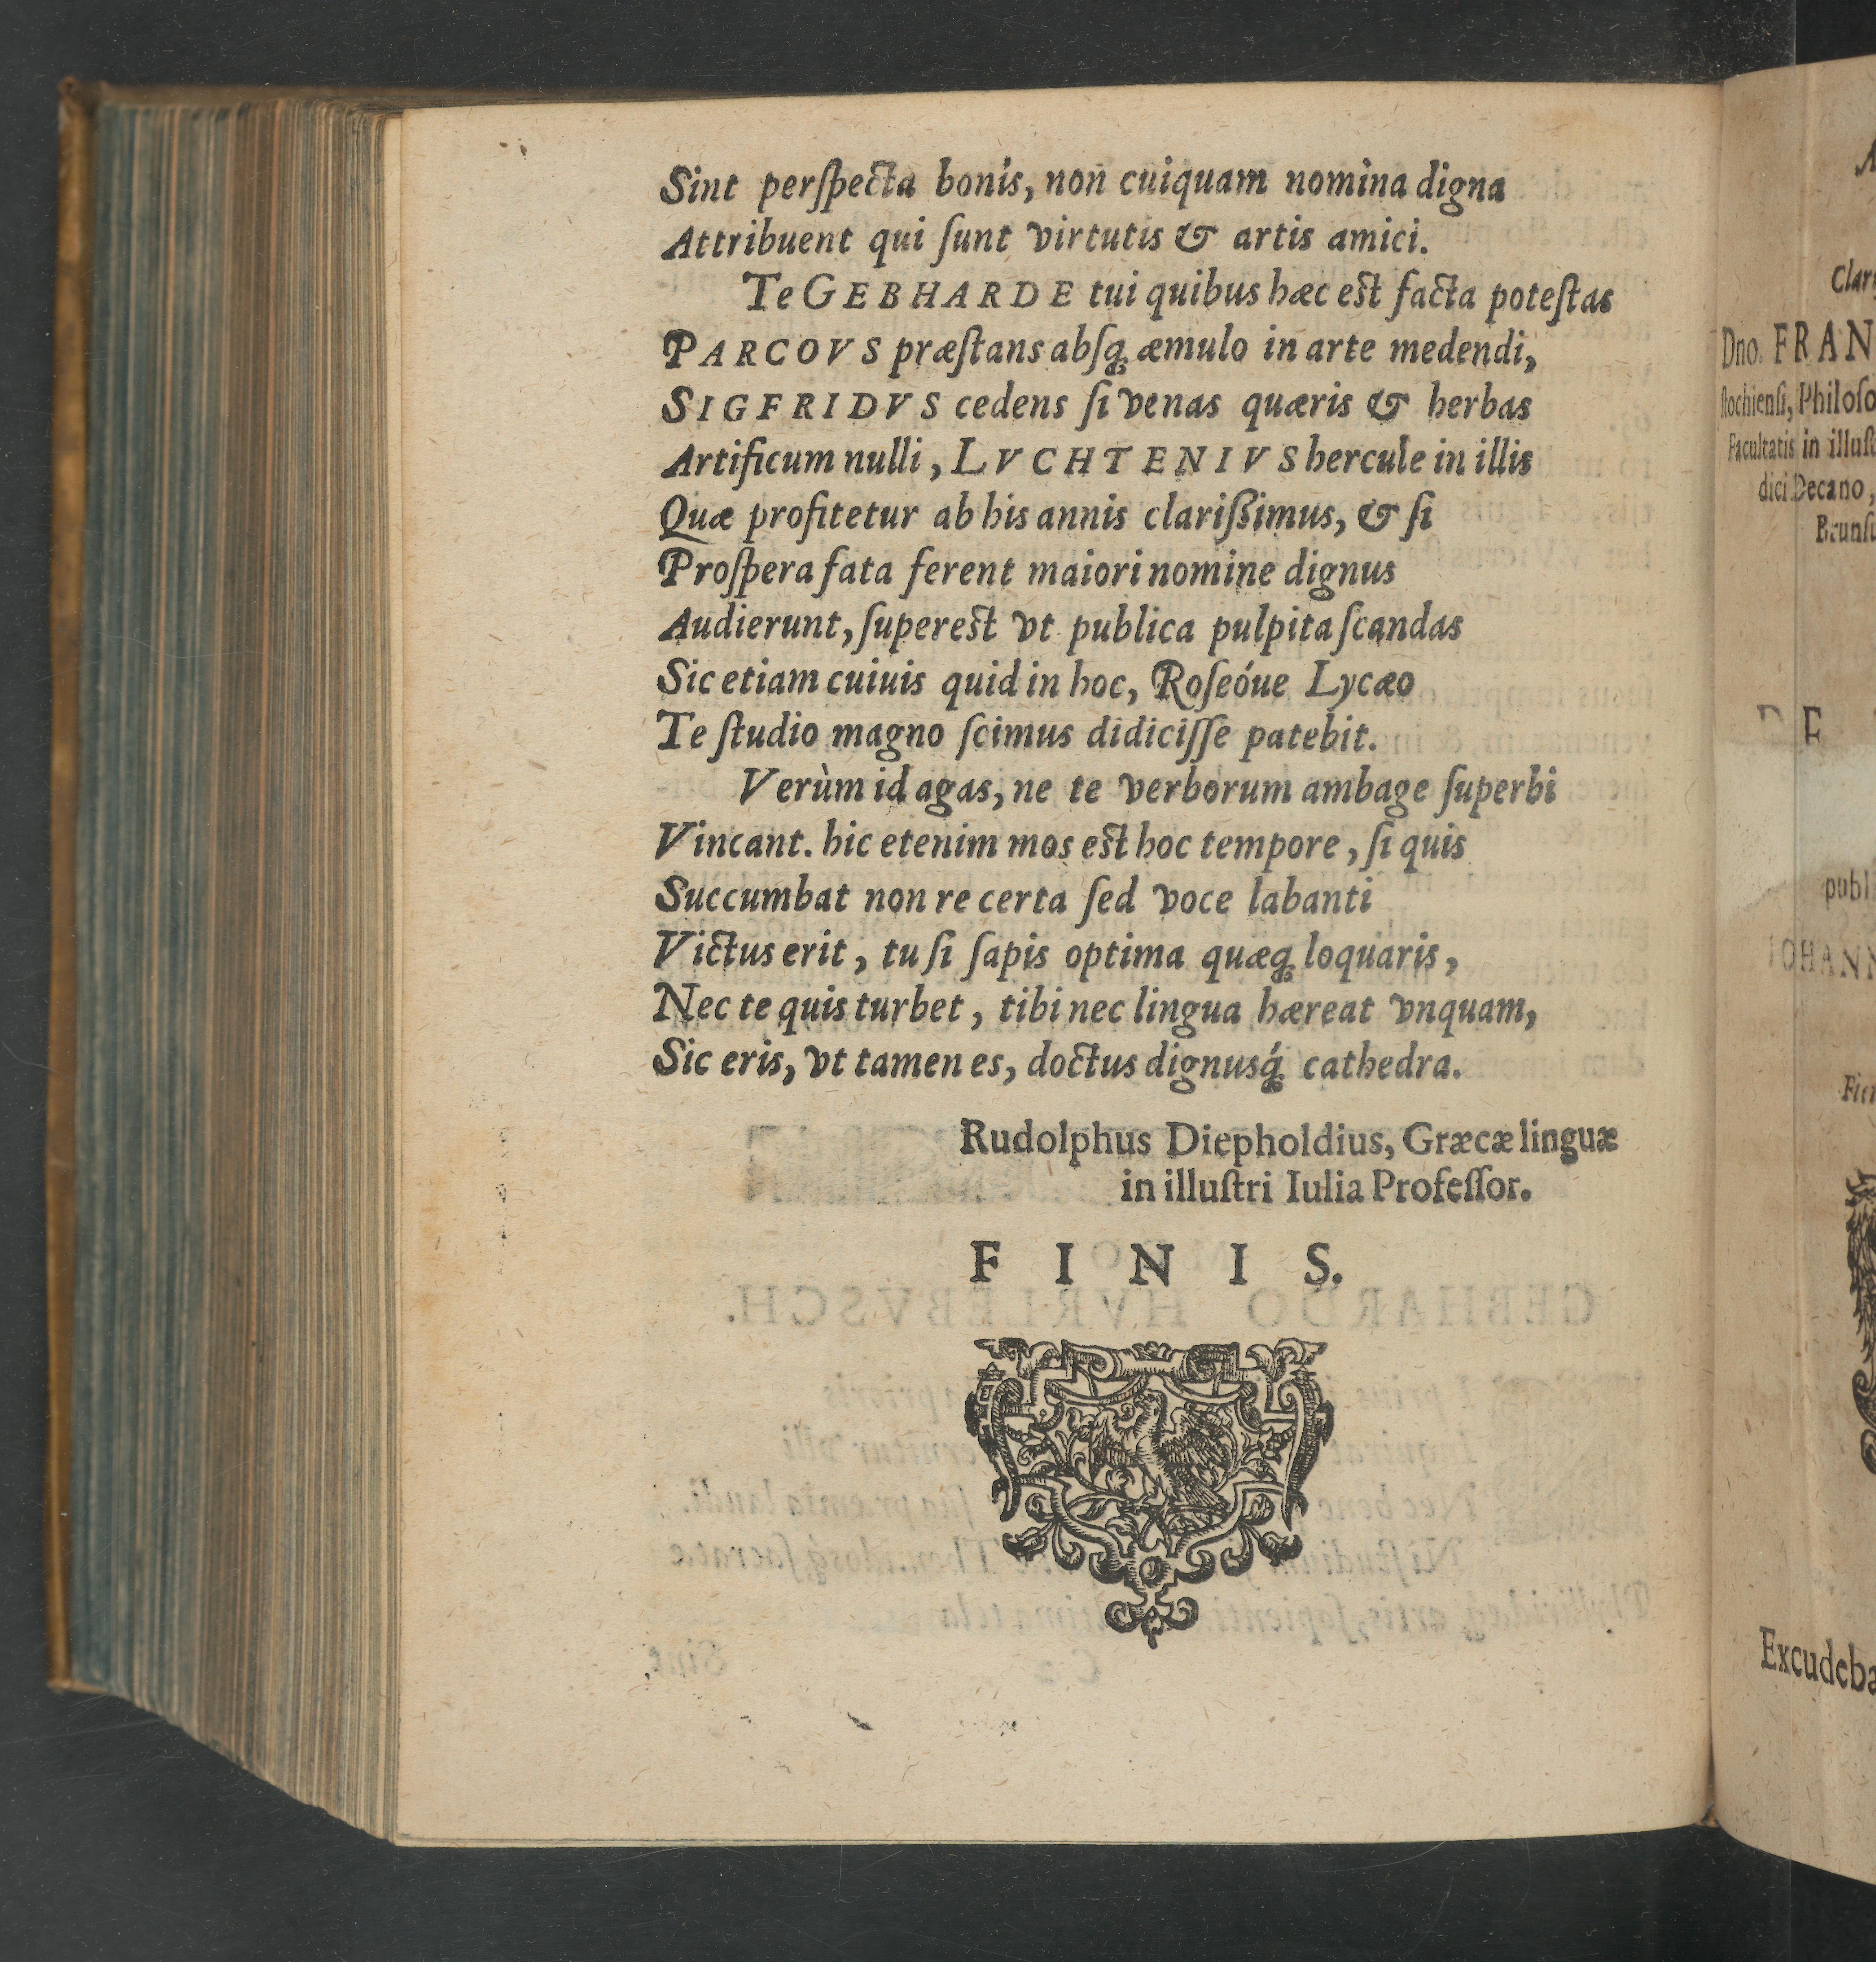 Sint perſpecta bonis, non cuiquam nomina digna
Attribuent qui ſunt virtutis & artis amici.
Te GEBHARDE tui quibus hæc eſt facta poteſtas
PARCOVS præſtans abſq́; æmulo in arte medendi,
SIGFRIDVS cedens ſi venas quæris & herbas
Artificum nulli, LVCHTENIVS hercule in illis
Quæ profitetur ab his annis clariſſimus, & ſi
Proſpera fata ferent maiori nomine dignus
Audierunt, ſupereſt vt publica pulpita ſcandas
Sic etiam cuiuis quid in hoc, Roſeóue Lycæo
Te ſtudio magno ſcimus didiciſſe patebit.
Verùm id agas, ne te verborum ambage ſuperbi
Vincant. hic etenim mos eſt hoc tempore, ſi quis
Succumbat non re certa ſed voce labanti
Victus erit, tu ſi ſapis optima quæq; loquaris,
Nec te quis turbet, tibi nec lingua hæreat vnquam,
Sic eris, vt tamen es, doctus dignusq́; cathedra.
Rudolphus Diepholdius, Græcæ linguæ
in illuſtri Iulia Profeſſor.
FINIS.
Dno. FRAN
ſtochienſi, Philoſo
Facultatis in illuſt
dici Decano,
Brunſu
DE
publi
IOHANN
Excudeba